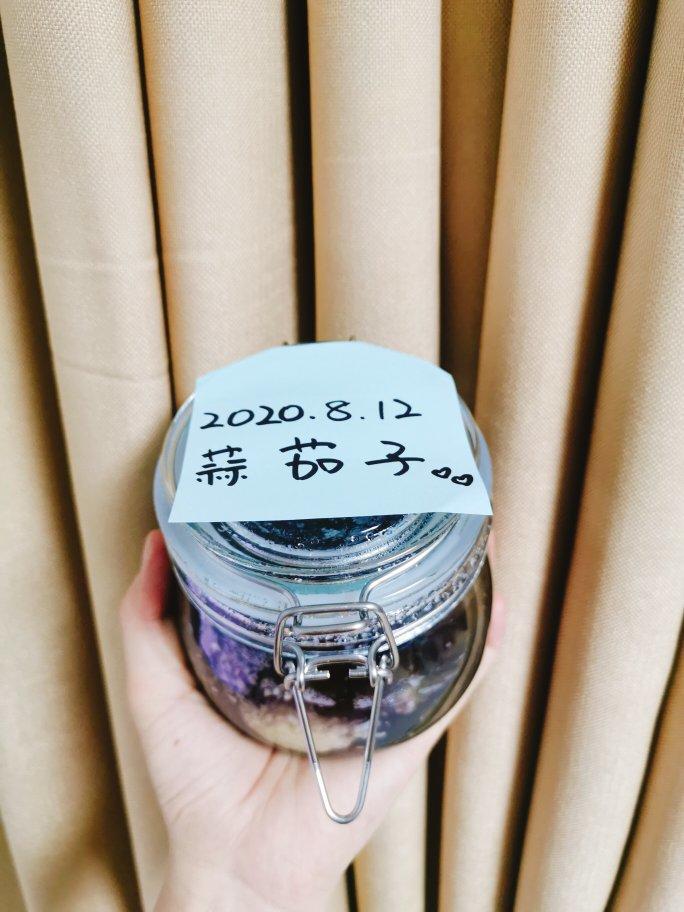 2020.8.12
蒜茄子